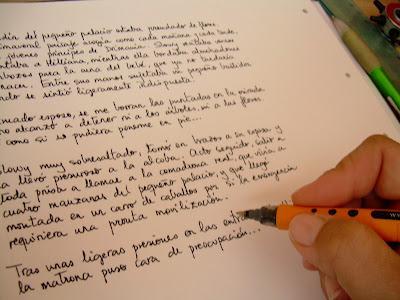 jardín del pequeño palacio estaba preñado de flores.
primaveral paisaje acogía como cada mañana y cada tarde,
jóvenes príncipes de Drimania. Slowy recitaba versos
a Helliana, mientras ella bordaba almohadones
para la cuna del bebé, que ya no tardaría
nacer. Entre sus manos sujetaba un pequeño bastidor
cuando se sintió ligeramente indispuesta:
amado esposo, se me borran las puntadas en la mirada
no alcanzo a detener ni a los árboles, ni a las flores.
como si yo pudiera ponerme en pie...
Slowy muy sobresaltado, tomó en brazos a su esposa y
la llevó presuroso a la alcoba. Acto seguido, salió a
toda prisa a llamar a la comadrona real, que vivía a
cuatro manzanas del pequeño palacio, y que llegó
montada en un carro de caballos por si la emergencia
requiriera una pronta movilización.
Tras unas ligeras presiones en las
la matrona puso cara de preocupación...